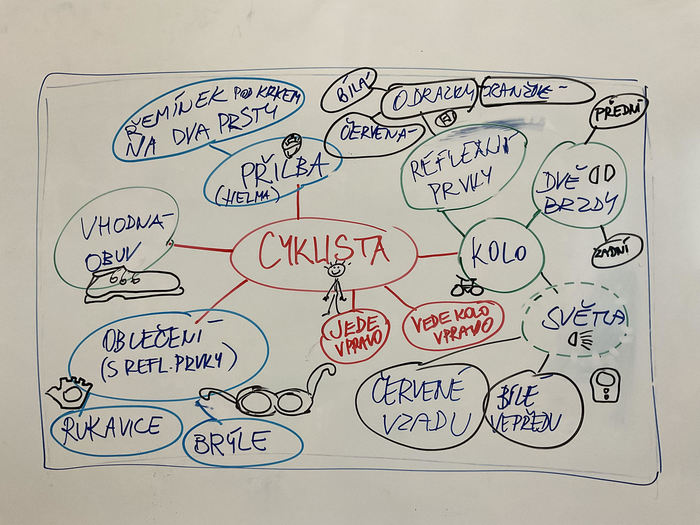 ŘEMÍNEK POD KRKEM
NA DVA PRSTY
BÍLÁ
ODRAZKY
ORANŽOVÉ
ČERVENÁ
PŘEDNÍ
PŘILBA
(HELMA)
REFLEXNÍ
PRVKY
DVĚ
BRZDY
ZADNÍ
VHODNÁ
OBUV
CYKLISTA
KOLO
JEDE
VPRAVO
VEDE KOLO
VPRAVO
SVĚTLA
OBLEČENÍ
(S REFL. PRVKY)
ČERVENÉ
VZADU
BÍLÉ
VEPŘEDU
RUKAVICE
BRÝLE